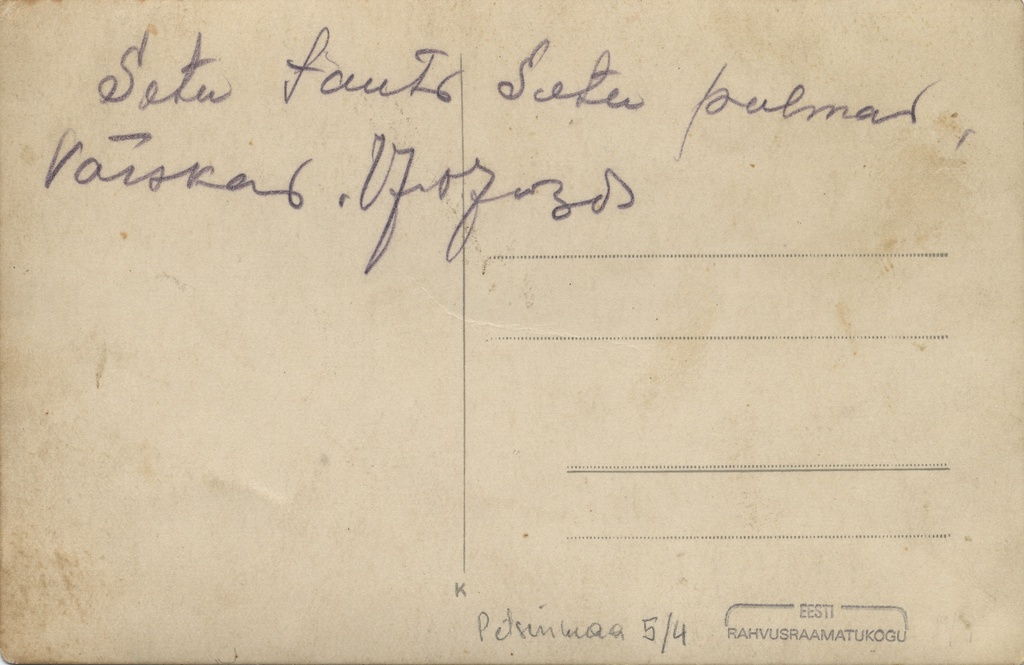 Setu tants Setu pulmas,
Värskas.
K
Petserimaa 5/4
EESTI
RAHVUSRAAMATUKOGU